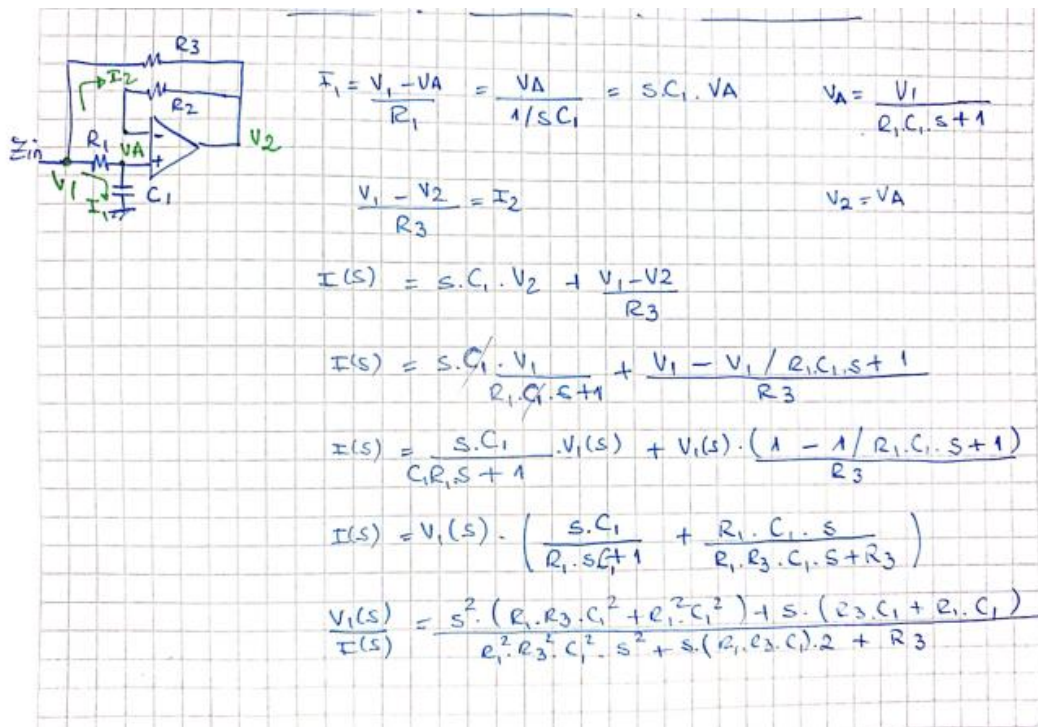 R3
I2
R2
R1 VA - +
Zin V1 I1 C1 V2
I1 = (V1 - VA) / R1 = VA / (1/sC1) = s.C1 . VA    VA = V1 / (R1.C1.s+1)
(V1 - V2) / R3 = I2    V2 = VA
I(s) = s.C1.V2 + (V1 - V2) / R3
I(s) = s.C1 . V1 / (R1.C1.s+1) + (V1 - V1 / R1.C1.s+1) / R3
I(s) = s.C1 / (C1R1s+1) .V1(s) + V1(s) . (1 - 1/R1.C1.s+1) / R3
I(s) = V1(s) . ( s.C1 / (R1.sC1+1) + R1.C1.s / (R1.R3.C1.s+R3) )
V1(s) / I(s) = s².(R1.R3.C1²+R1².C1²)+s.(R3.C1+R1.C1) / R1².R3².C1².s²+s.(R1.R3.C1).2+R3